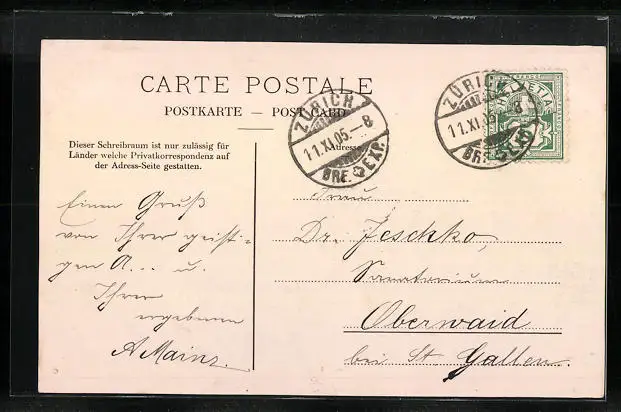 CARTE POSTALE
POSTKARTE — POST CARD
Dieser Schreibraum ist nur zulässig für
Länder welche Privatkorrespondenz auf
der Adress-Seite gestatten.
Adresse
ZÜRICH
11.XI.05.–8
BRE. EXP.
ZÜRICH
11.XI.05 8
BRE. EXP.
FRANCO
HELVETIA
Einen Gruß
von Ihrer geisti-
gen A... u.
Ihrer
ergebenen
A Mainz.
Frau
Dr. Jeschko,
Sanatorium
Oberwaid
bei St Gallen.